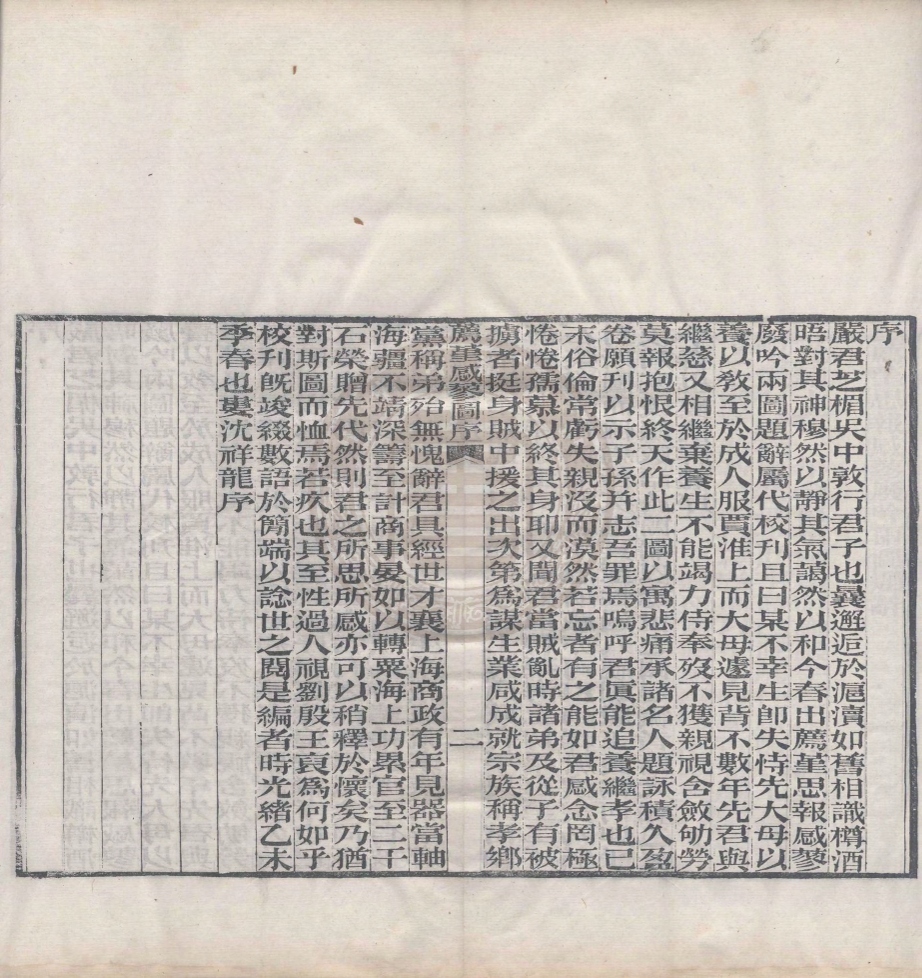 序
嚴君芝楣吳中敦行君子也曩邂逅於滬瀆如舊相識樽酒
晤對其神穆然以靜其氣藹然以和今春出薦堇思報感蓼
廢吟兩圖題辭屬代校刊且曰某不幸生卽失恃先大母以
養以敎至於成人服賈淮上而大母遽見背不數年先君與
繼慈又相繼棄養生不能竭力侍奉歿不獲親視含斂劬勞
莫報抱恨終天作此二圖以寓悲痛承諸名人題詠積久盈
卷願刊以示子孫幷志吾罪焉嗚呼君眞能追養繼孝也已
末俗倫常虧失親沒而漠然若忘者有之能如君感念罔極
惓惓孺慕以終其身耶又聞君當賊亂時諸弟及從子有被
擄者挺身賊中援之出次第爲謀生業咸成就宗族稱孝鄉
薦堇感蓼圖序
二
黨稱弟殆無愧辭君具經世才襄上海商政有年見器當軸
海疆不靖深籌至計商事晏如以轉粟海上功累官至二千
石榮贈先代然則君之所思所感亦可以稍釋於懷矣乃猶
對斯圖而恤焉若疚也其至性過人視劉殷王裒爲何如乎
校刊旣竣綴數語於簡端以諗世之閱是編者時光緒乙未
季春也婁沈祥龍序